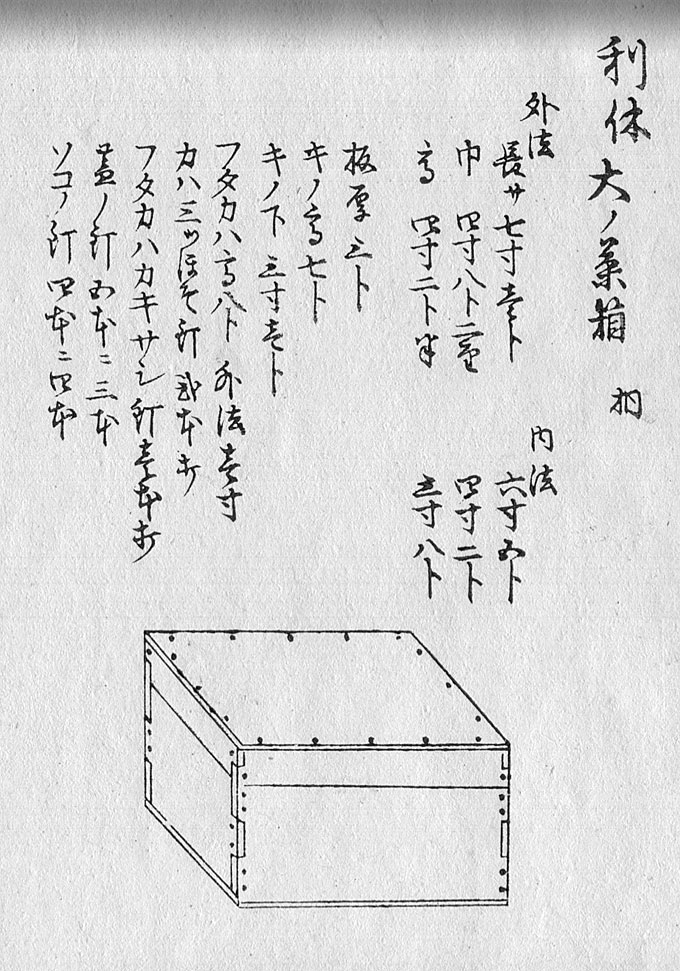 利休大ノ茶箱 桐
外法 内法
長サ七寸壱ト 六寸五ト
巾 四寸八ト二厘 四寸二ト
高 四寸二ト半 三寸八ト
板厚三ト
キノ高七ト
キノ下 三寸壱ト
フタカハ高八ト 外法壱寸
カハ三ツほそ釘弐本打
フタカハカキサシ釘壱本打
蓋ノ釘五本ニ三本
ソコノ釘四本ニ四本